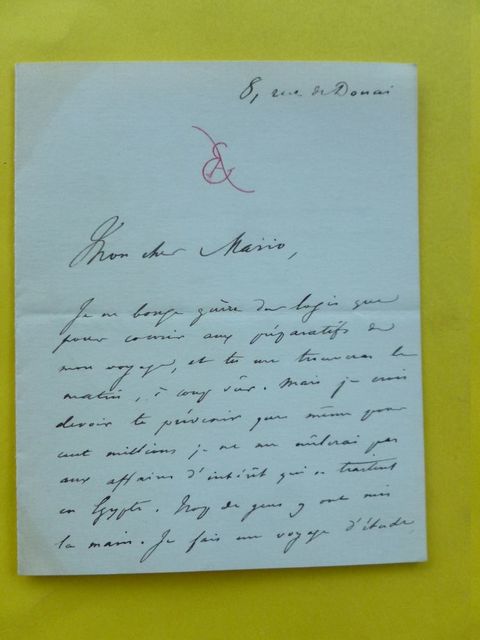 8, rue de Douai
Mon cher Mario,
Je ne bouge guère du logis que
pour courir aux préparatifs de
mon voyage, et tu me trouveras le
matin, à coup sûr. Mais je crois
devoir te prévenir que même pour
cent millions je ne me mêlerai pas
aux affaires d'intérêt qui se traitent
en Egypte. Trop de gens y ont mis
la main. Je fais un voyage d'étude